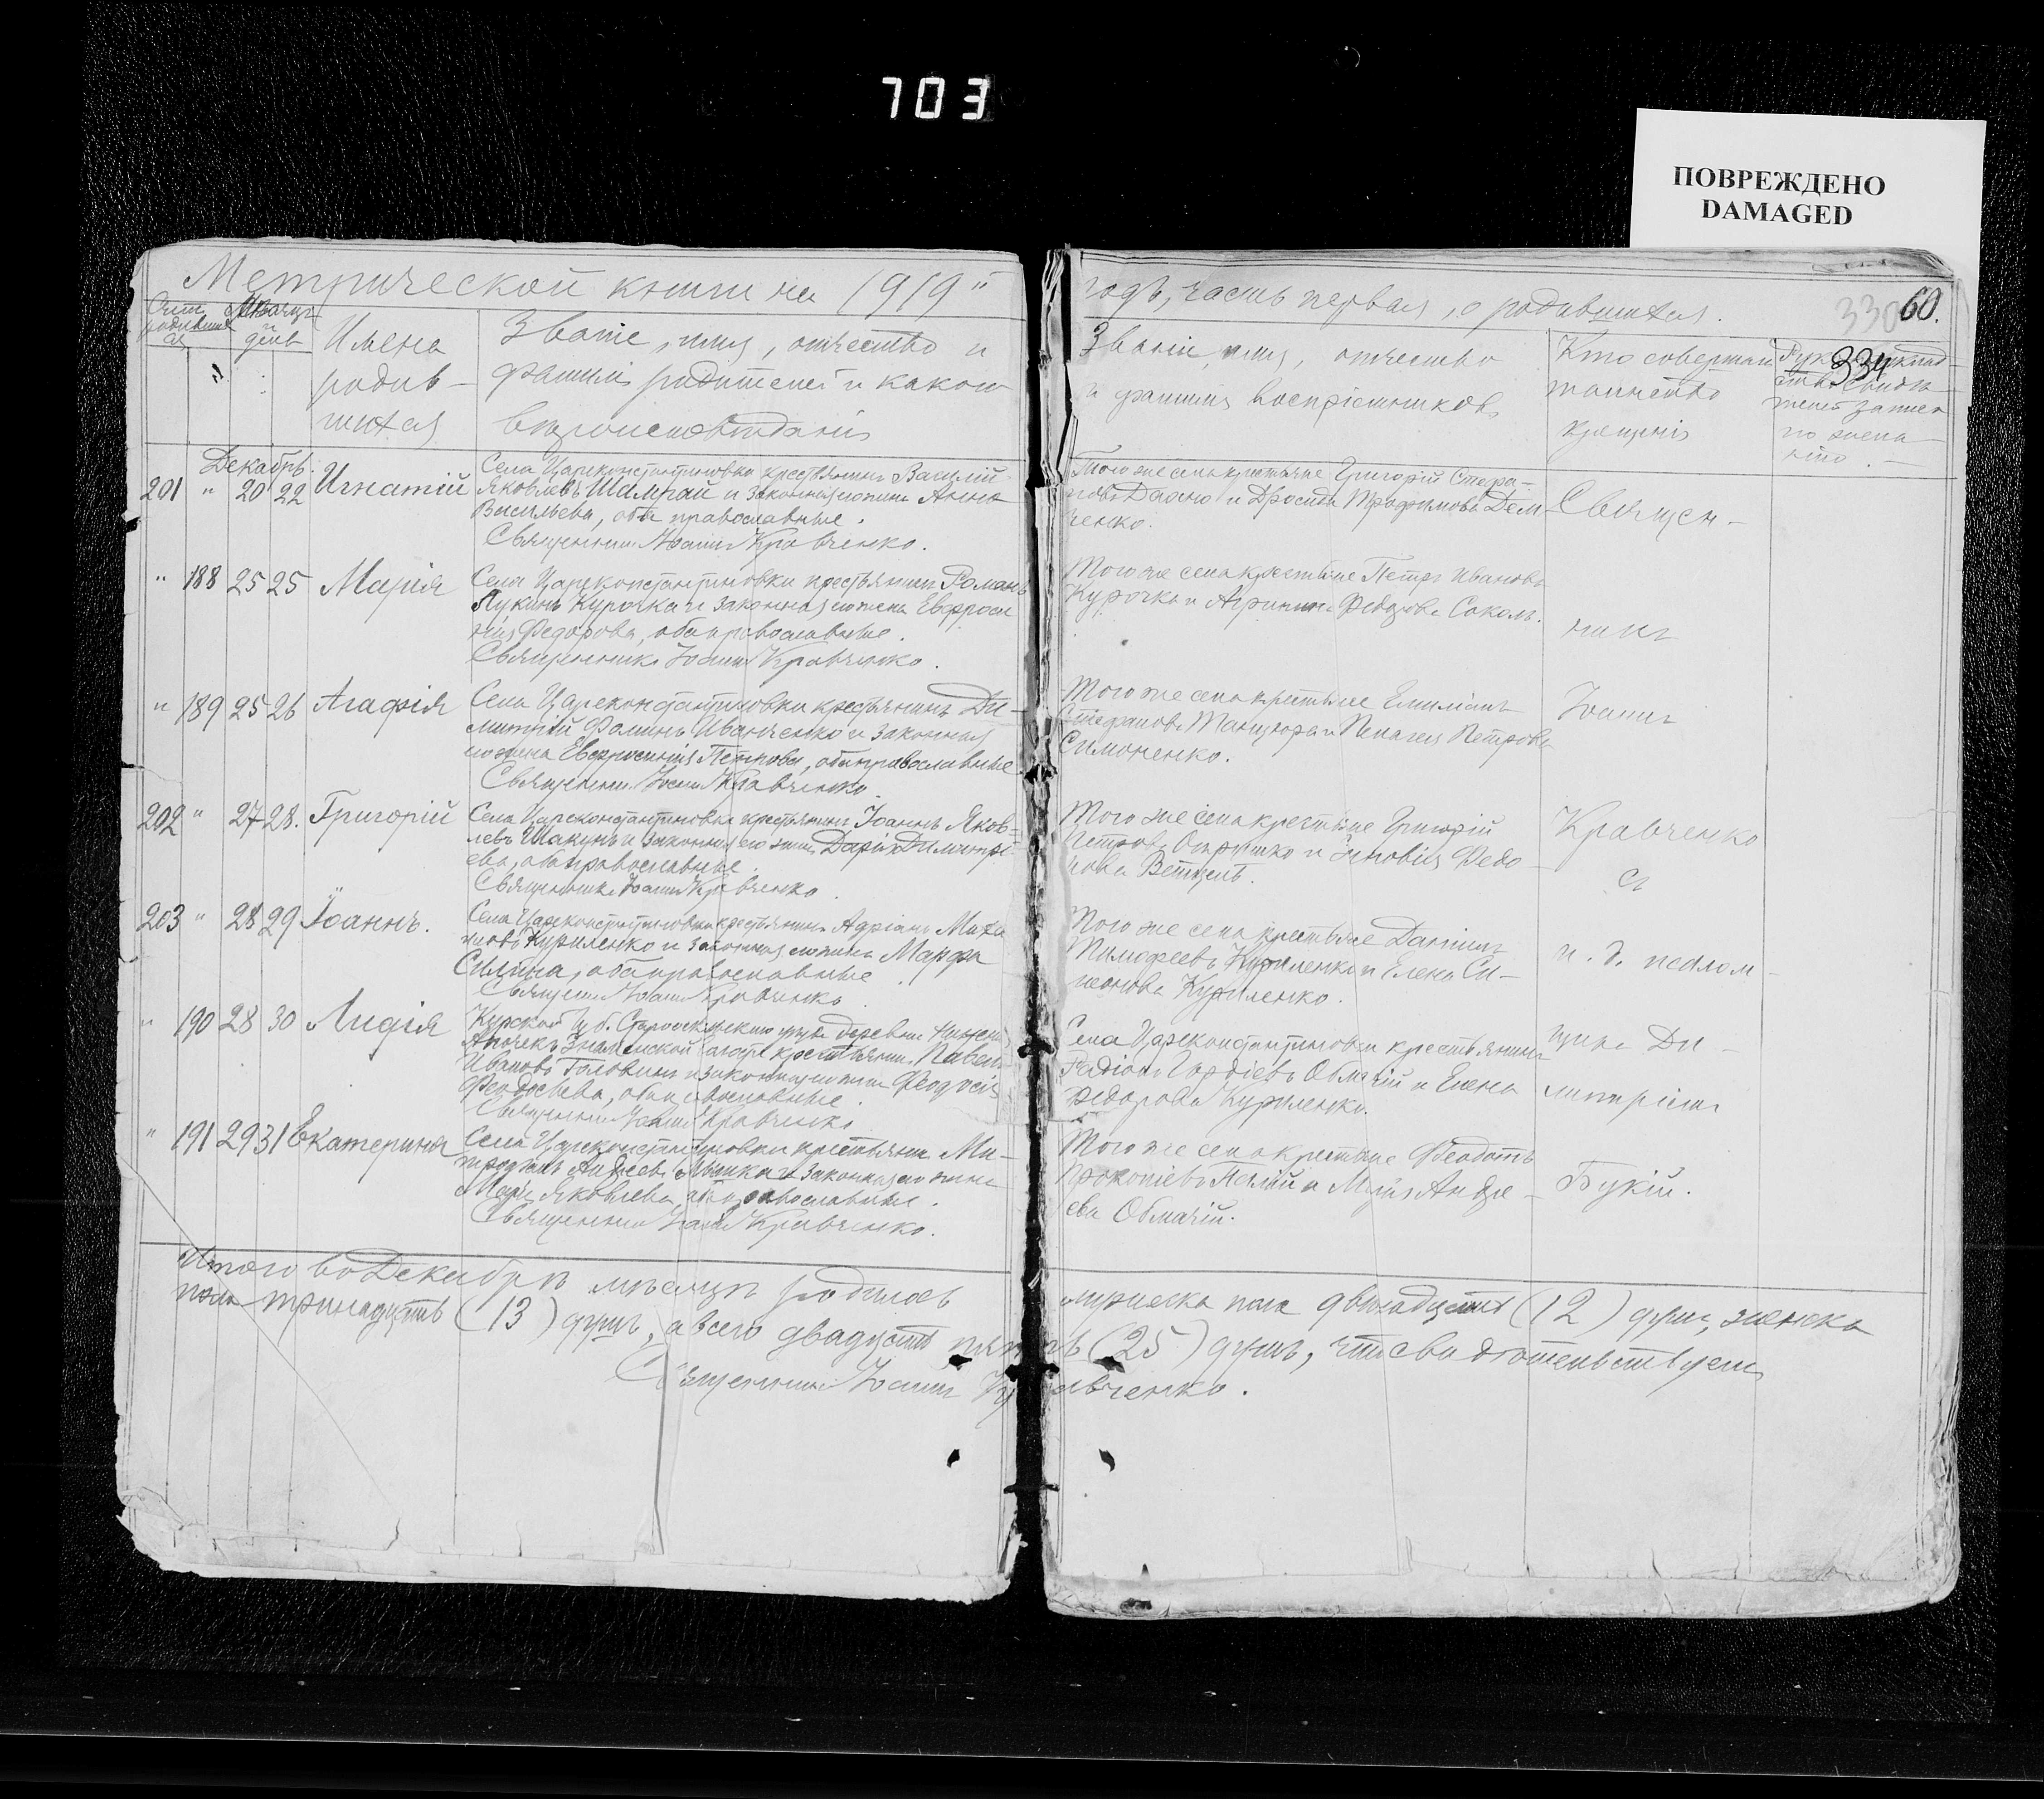 703
ПОВРЕЖДЕНО
DAMAGED
Метрической книги на 1919
годъ, часть первая, о родившихся.
330
60.
334
Счетъ родившихся
Мѣсяцъ и день
Имена
родив-
шихся
Званіе, имя, отчество и
фамилія родителей и какого
вѣроисповѣданія
Званіе, имя, отчество
и фамилія воспріемниковъ
Кто совершалъ
таинство
крещенія
Декабрь.
201 " 20 22 Игнатій
Села Цареконстантиновки крестьянинъ Василій
Яковлевъ Шампай и законная его жена Анна
Васильева, оба православные.
Священникъ Іоаннъ Кравченко.
Того же села крестьяне Григорій Стефа-
новъ и Дросида Трофимова Дем
ченко.
" 188 25 25 Марія
Села Цареконстантиновки крестьянинъ Романъ
Лукинъ Курочка и законная его жена Евфроси
нія Федорова, оба православные.
Священникъ Іоаннъ Кравченко.
Того же села крестьяне Петръ Ивановъ
Курочка и Агрипина Федорова Соколъ.
" 189 25 26 Агафія
Села Цареконстантиновки крестьянинъ Ди-
митрій Фоминъ Иванченко и законная
его жена Евфросинія Петрова, оба православные
Священникъ Іоаннъ Кравченко
Того же села крестьяне Емиліанъ
Стефановъ Танцюра и Пелагея Петрова
Симоненко.
202 " 27 28. Григорій
Села Цареконстантиновки крестьянинъ Іоаннъ Яков-
левъ Шакунъ и законная его жена Дарія Димитрі
ева, оба православные.
Священникъ Іоаннъ Кравченко.
Того же села крестьяне Григорій
Петровъ и Зиновія Федо-
рова
203 " 28 29 Іоаннъ.
Села Цареконстантиновки крестьянинъ Адріанъ Миха
иловъ Куриленко и законная его жена Марфа
Силина, оба православные.
Священникъ Іоаннъ Кравченко.
Того же села крестьяне Даніилъ
Тимофеевъ Куриленко и Елена Си-
меонова Куриленко.
" 190 28 30 Лидія
Курской губ. Старооскольскаго уѣзда деревни
Знаменской крестьянинъ Павелъ
Ивановъ Головинъ и законная его жена Феодосія
оба православные.
Священникъ Іоаннъ Кравченко
Села Цареконстантиновки крестьянинъ
Родіонъ Гордіевъ Обмачій и Елена
Федорова Куриленко.
" 191 29 31 Екатерина
Села Цареконстантиновки крестьянинъ Ми-
трофанъ Андреевъ Мышка и законная его жена
Марія Яковлева, оба православные.
Священникъ Іоаннъ Кравченко.
Того же села крестьяне Феодотъ
Прокопіевъ Палій и Марія Андре-
ева Обмачій.
Священ-
никъ
Іоаннъ
Кравченко
съ
и. д. псалом-
щика Ди-
митріемъ
Букій.
Итого въ Декабрѣ мѣсяцѣ родилось мужеска пола двѣнадцать (12) душъ, женска
пола тринадцать (13) душъ, а всего двадцать пять (25) душъ, что свидѣтельствуемъ
Священникъ Іоаннъ Кравченко.